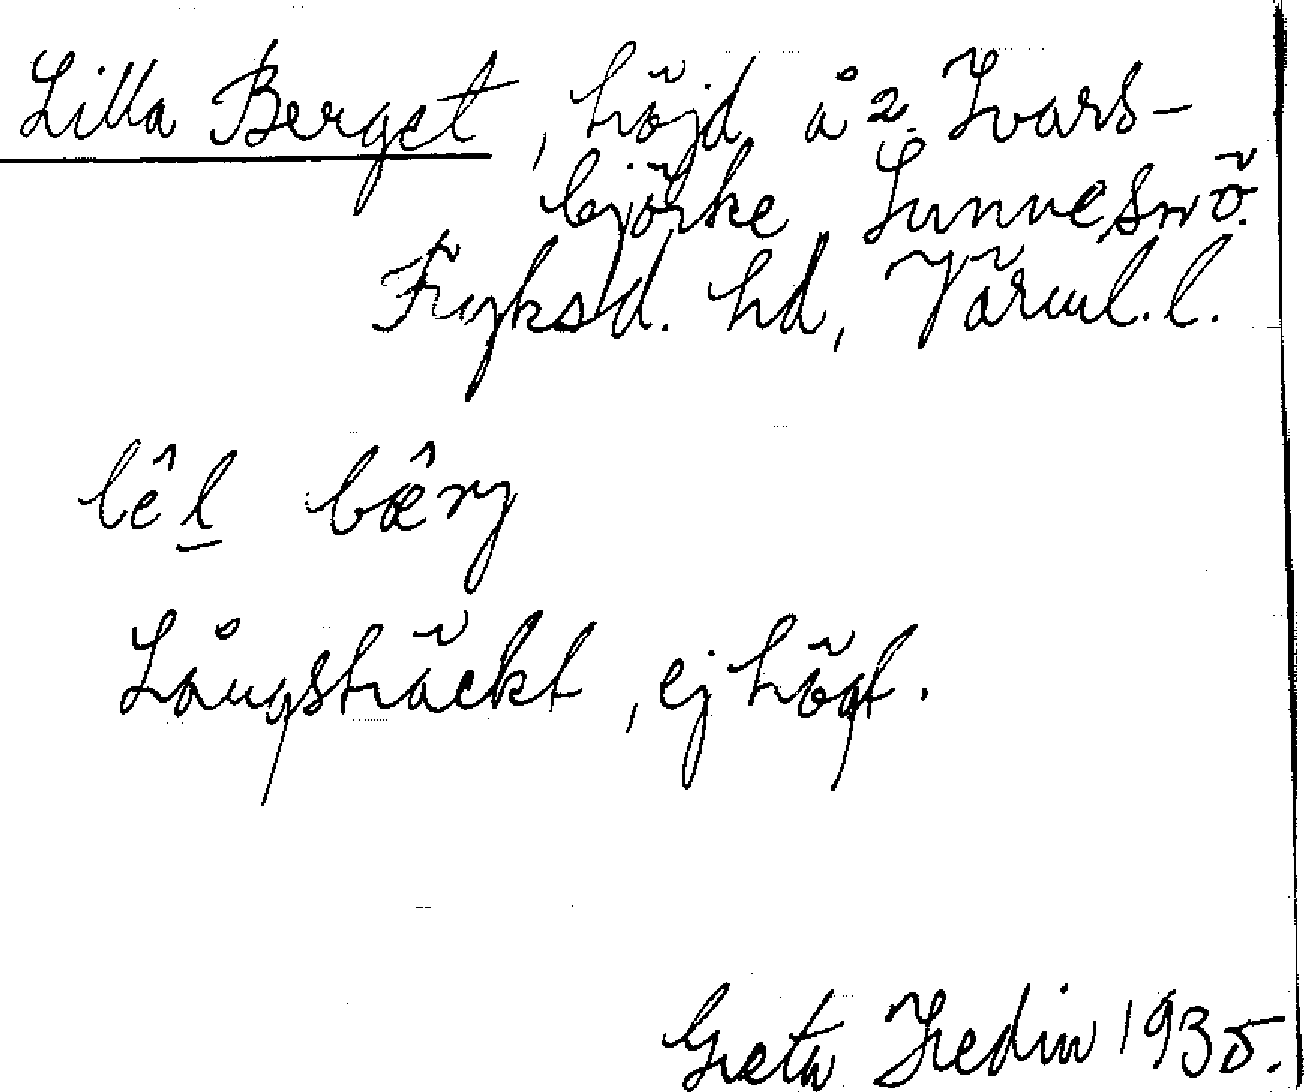 Lilla Berget, höjd å 2. Ivars-
björke Sunne sn ö.
Fryksd. hd, Värml. l.
lêl bærj
Långsträckt, ej högt.
Greta Hedin 1935.